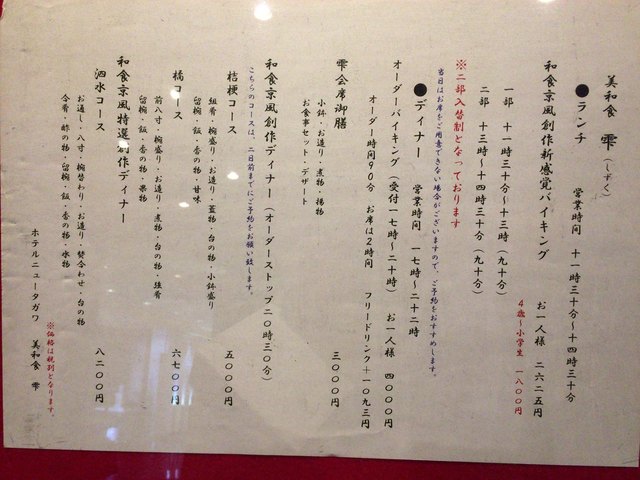 美和食 雫(しずく)
●ランチ 営業時間 十一時三十分〜十四時三十分
和食京風創作新感覚バイキング お一人様 二六二五円
4歳〜小学生 一八〇〇円
一部 十一時三十分〜十三時(九十分)
二部 十三時〜十四時三十分(九十分)
※二部入替制となっております
当日はお席をご用意できない場合がございますので、ご予約をおすすめします。
●ディナー 営業時間 一七時〜二十二時
オーダーバイキング(受付一七時〜二十時) お一人様 四〇〇〇円
オーダー時間90分 お席は2時間 フリードリンク+一〇九三円
雫会席御膳 三〇〇〇円
小鉢・お造り・煮物・揚物
お食事セット・デザート
和食京風創作ディナー(オーダーストップ二〇時三〇分)
こちらのコースは、二日前までにご予約をお願い致します。
桔梗コース 五〇〇〇円
組肴・椀盛り・お造り・蓋物・台の物・小鉢盛り
留椀・飯・香の物・甘味
橘コース 六七〇〇円
前八寸・椀盛り・お造り・煮物・台の物・強肴
留椀・飯・香の物・果物
和食京風特選創作ディナー
泗水コース 八二〇〇円
お通し・八寸・椀替わり・お造り・焚合わせ・台の物
合肴・酢の物・留椀・飯・香の物・水物
※価格は税別となります。
ホテルニュータガワ 美和食 雫